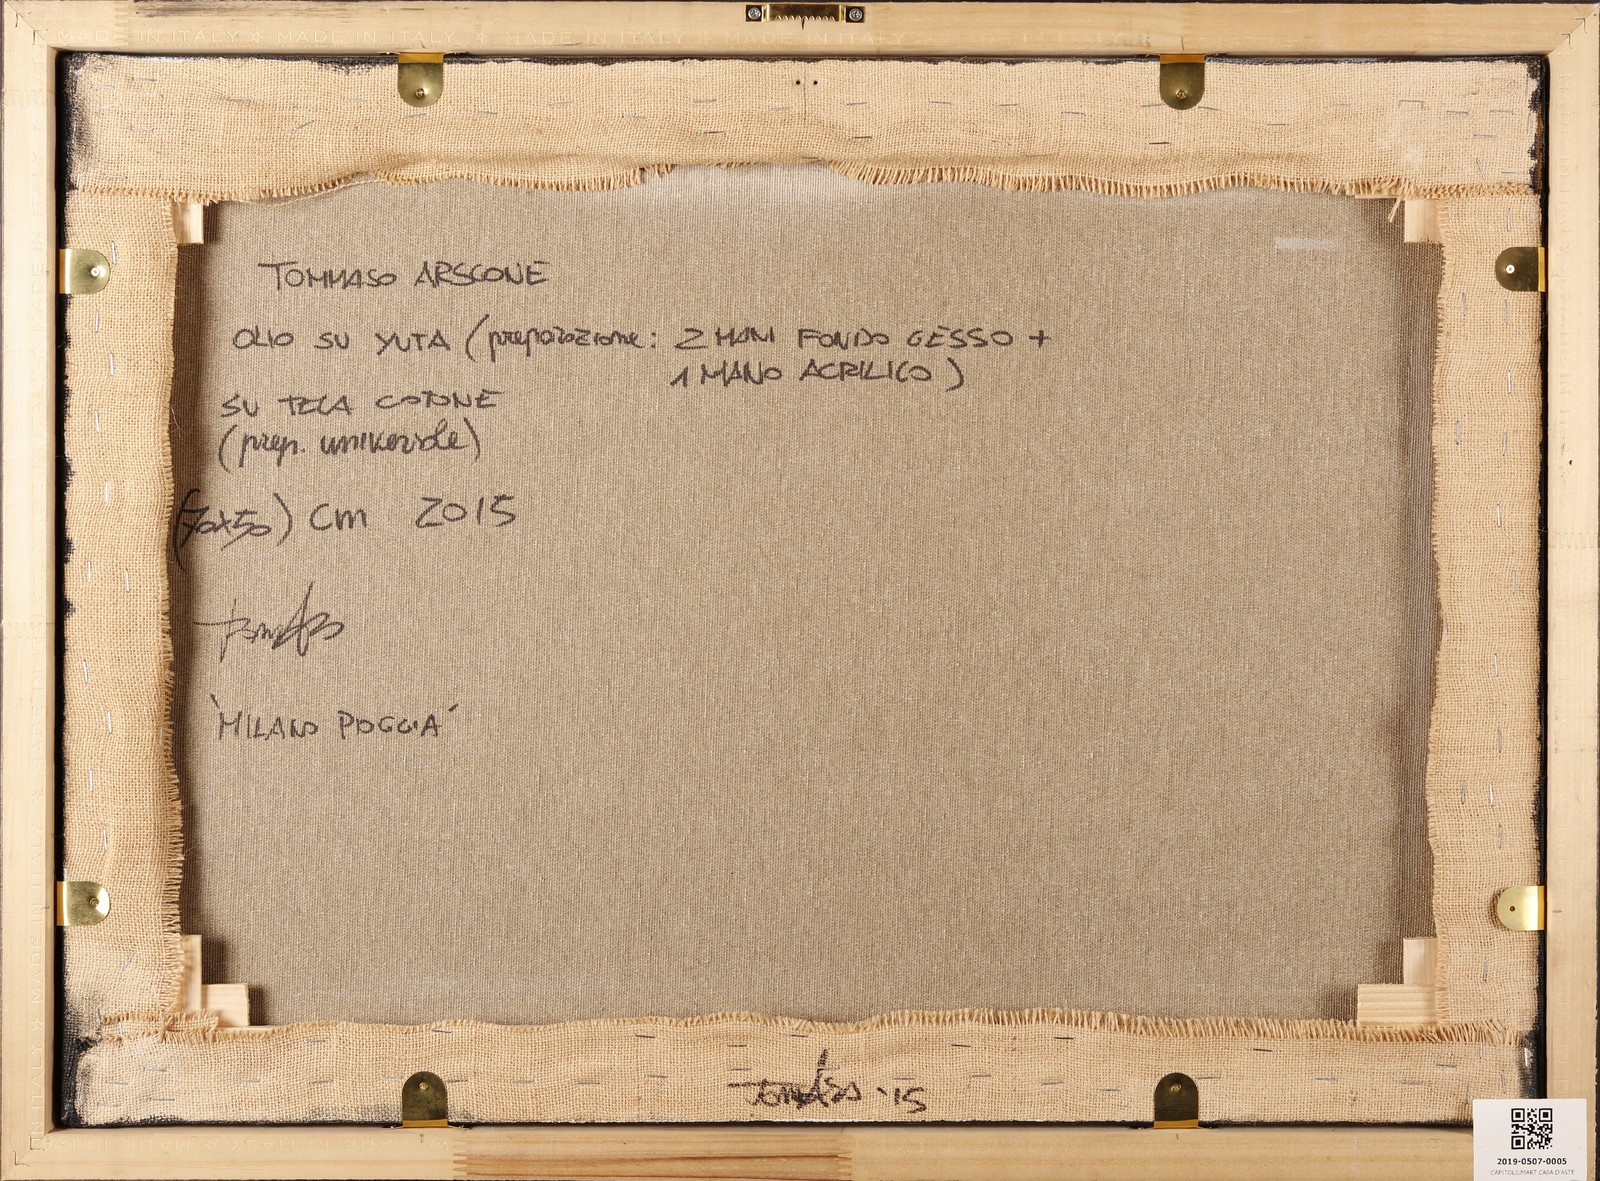 MADE IN ITALY * MADE IN ITALY * MADE IN ITALY * MADE IN ITALY
TOMMASO ARSCONE
OLIO SU YUTA (preparazione: 2 MANI FONDO GESSO +
1 MANO ACRILICO)
SU TELA COTONE
(prep. universale)
(70x50) cm 2015
'MILANO POGGIA'
'15
2019-0507-0005
CAPITOLIUMART CASA D'ASTE